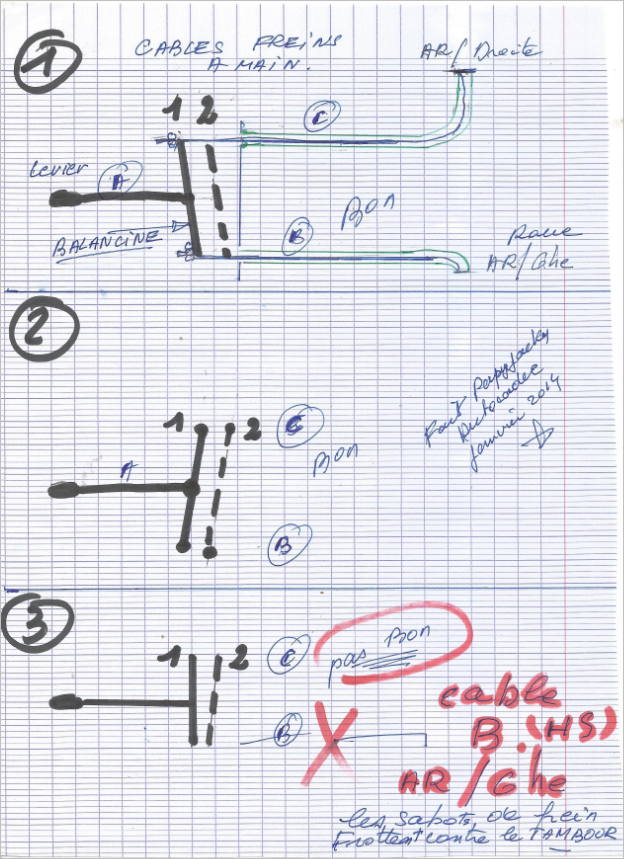 1
CABLES FREINS
A MAIN.
AR/Droite
1 2
C
Levier
A
Bon
B
BALANCINE
Roue
AR/Ghe
2
1 2
C
Bon
A
B
Fait Papyjacky
Autocadec
Janvier 2014
3
1 2
C
pas Bon
B
X
cable
B.(HS)
AR/Ghe
les sabots de frein
Frottent contre le TAMBOUR